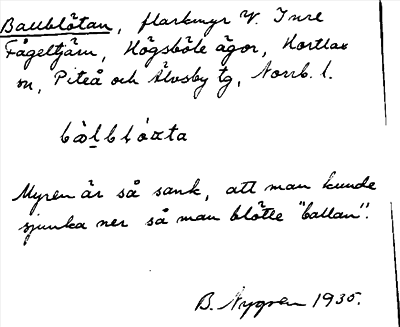 Ballblötan, flarkmyr V. Inre
Fågeltjärn, Högsböle ägor, Hortlax
sn, Piteå och Älvsby tg, Norrb. l.
bàlblo̕ta
Myren är så sank, att man kunde
sjunka ner så man blötte "ballan".
B. Nygren 1935.